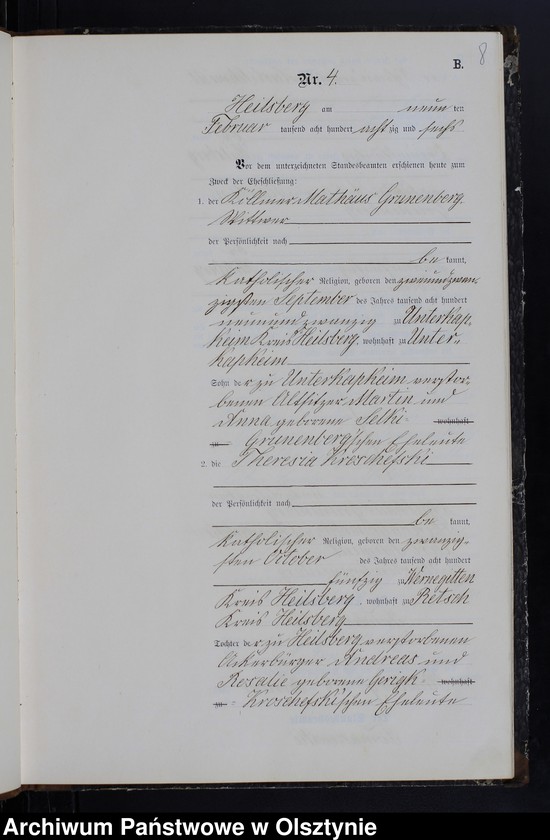 8
B.
Nr. 4.
Heilsberg am neun ten
Februar tausend acht hundert achtzig und sechs
Vor dem unterzeichneten Standesbeamten erschienen heute zum
Zweck der Eheschließung:
1. der Köllmer Mathäus Grunenberg
Wittwer
der Persönlichkeit nach
be kannt,
katholischer Religion, geboren den zweiundzwan-
zigsten September des Jahres tausend acht hundert
neunundzwanzig zu Unterkap-
keim Kreis Heilsberg, wohnhaft zu Unter-
kapkeim
Sohn der zu Unterkapkeim verstor-
benen Altsitzer Martin und
Anna geborene Selki wohnhaft
zu Grunenberg'schen Eheleute
2. die Theresia Kroschefski
der Persönlichkeit nach
be kannt,
katholischer Religion, geboren den zwanzig-
sten October des Jahres tausend acht hundert
fünfzig zu Wernegitten
Kreis Heilsberg, wohnhaft zu Retsch
Kreis Heilsberg
Tochter der zu Heilsberg verstorbenen
Ackerbürger Andreas und
Rosalie geborene Gerigk wohnhaft
zu Kroschefski'schen Eheleute
Archiwum Państwowe w Olsztynie